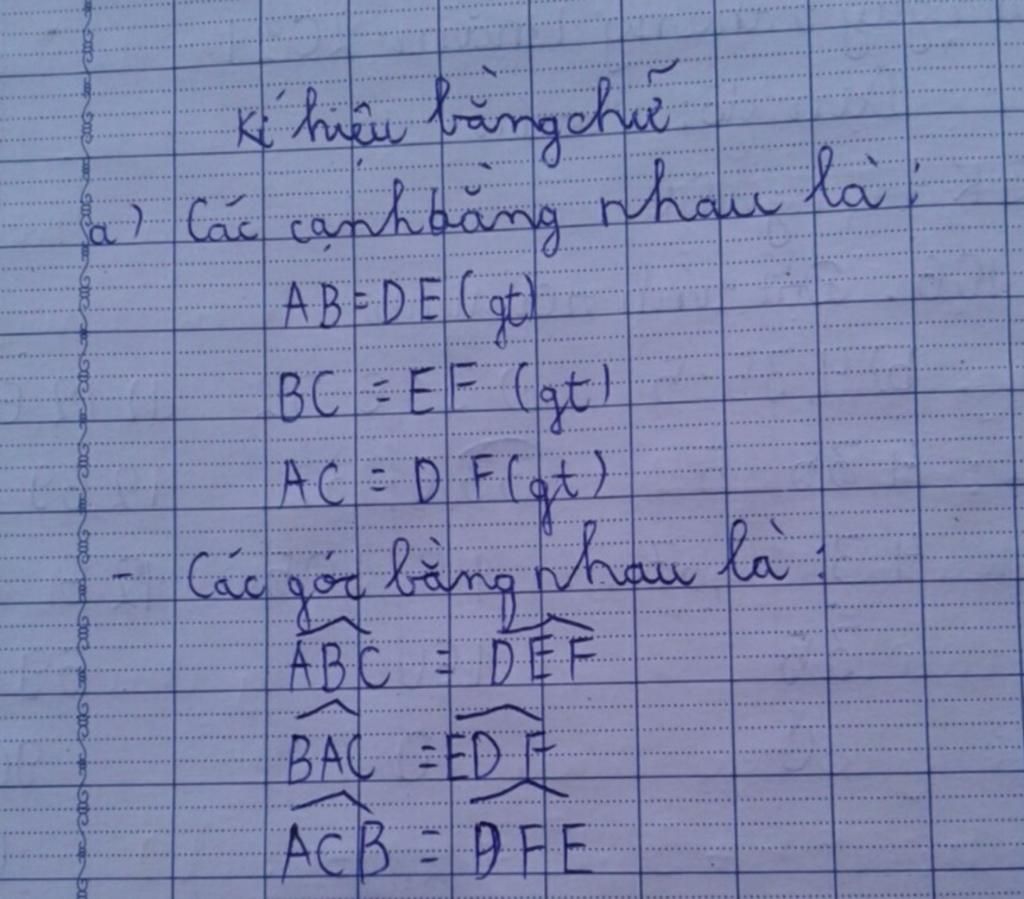 Kí hiệu bằng chữ
a) Các cạnh bằng nhau là:
AB = DE (gt)
BC = EF (gt)
AC = DF (gt)
- Các góc bằng nhau là:
\widehat{ABC} = \widehat{DEF}
\widehat{BAC} = \widehat{EDF}
\widehat{ACB} = \widehat{DFE}